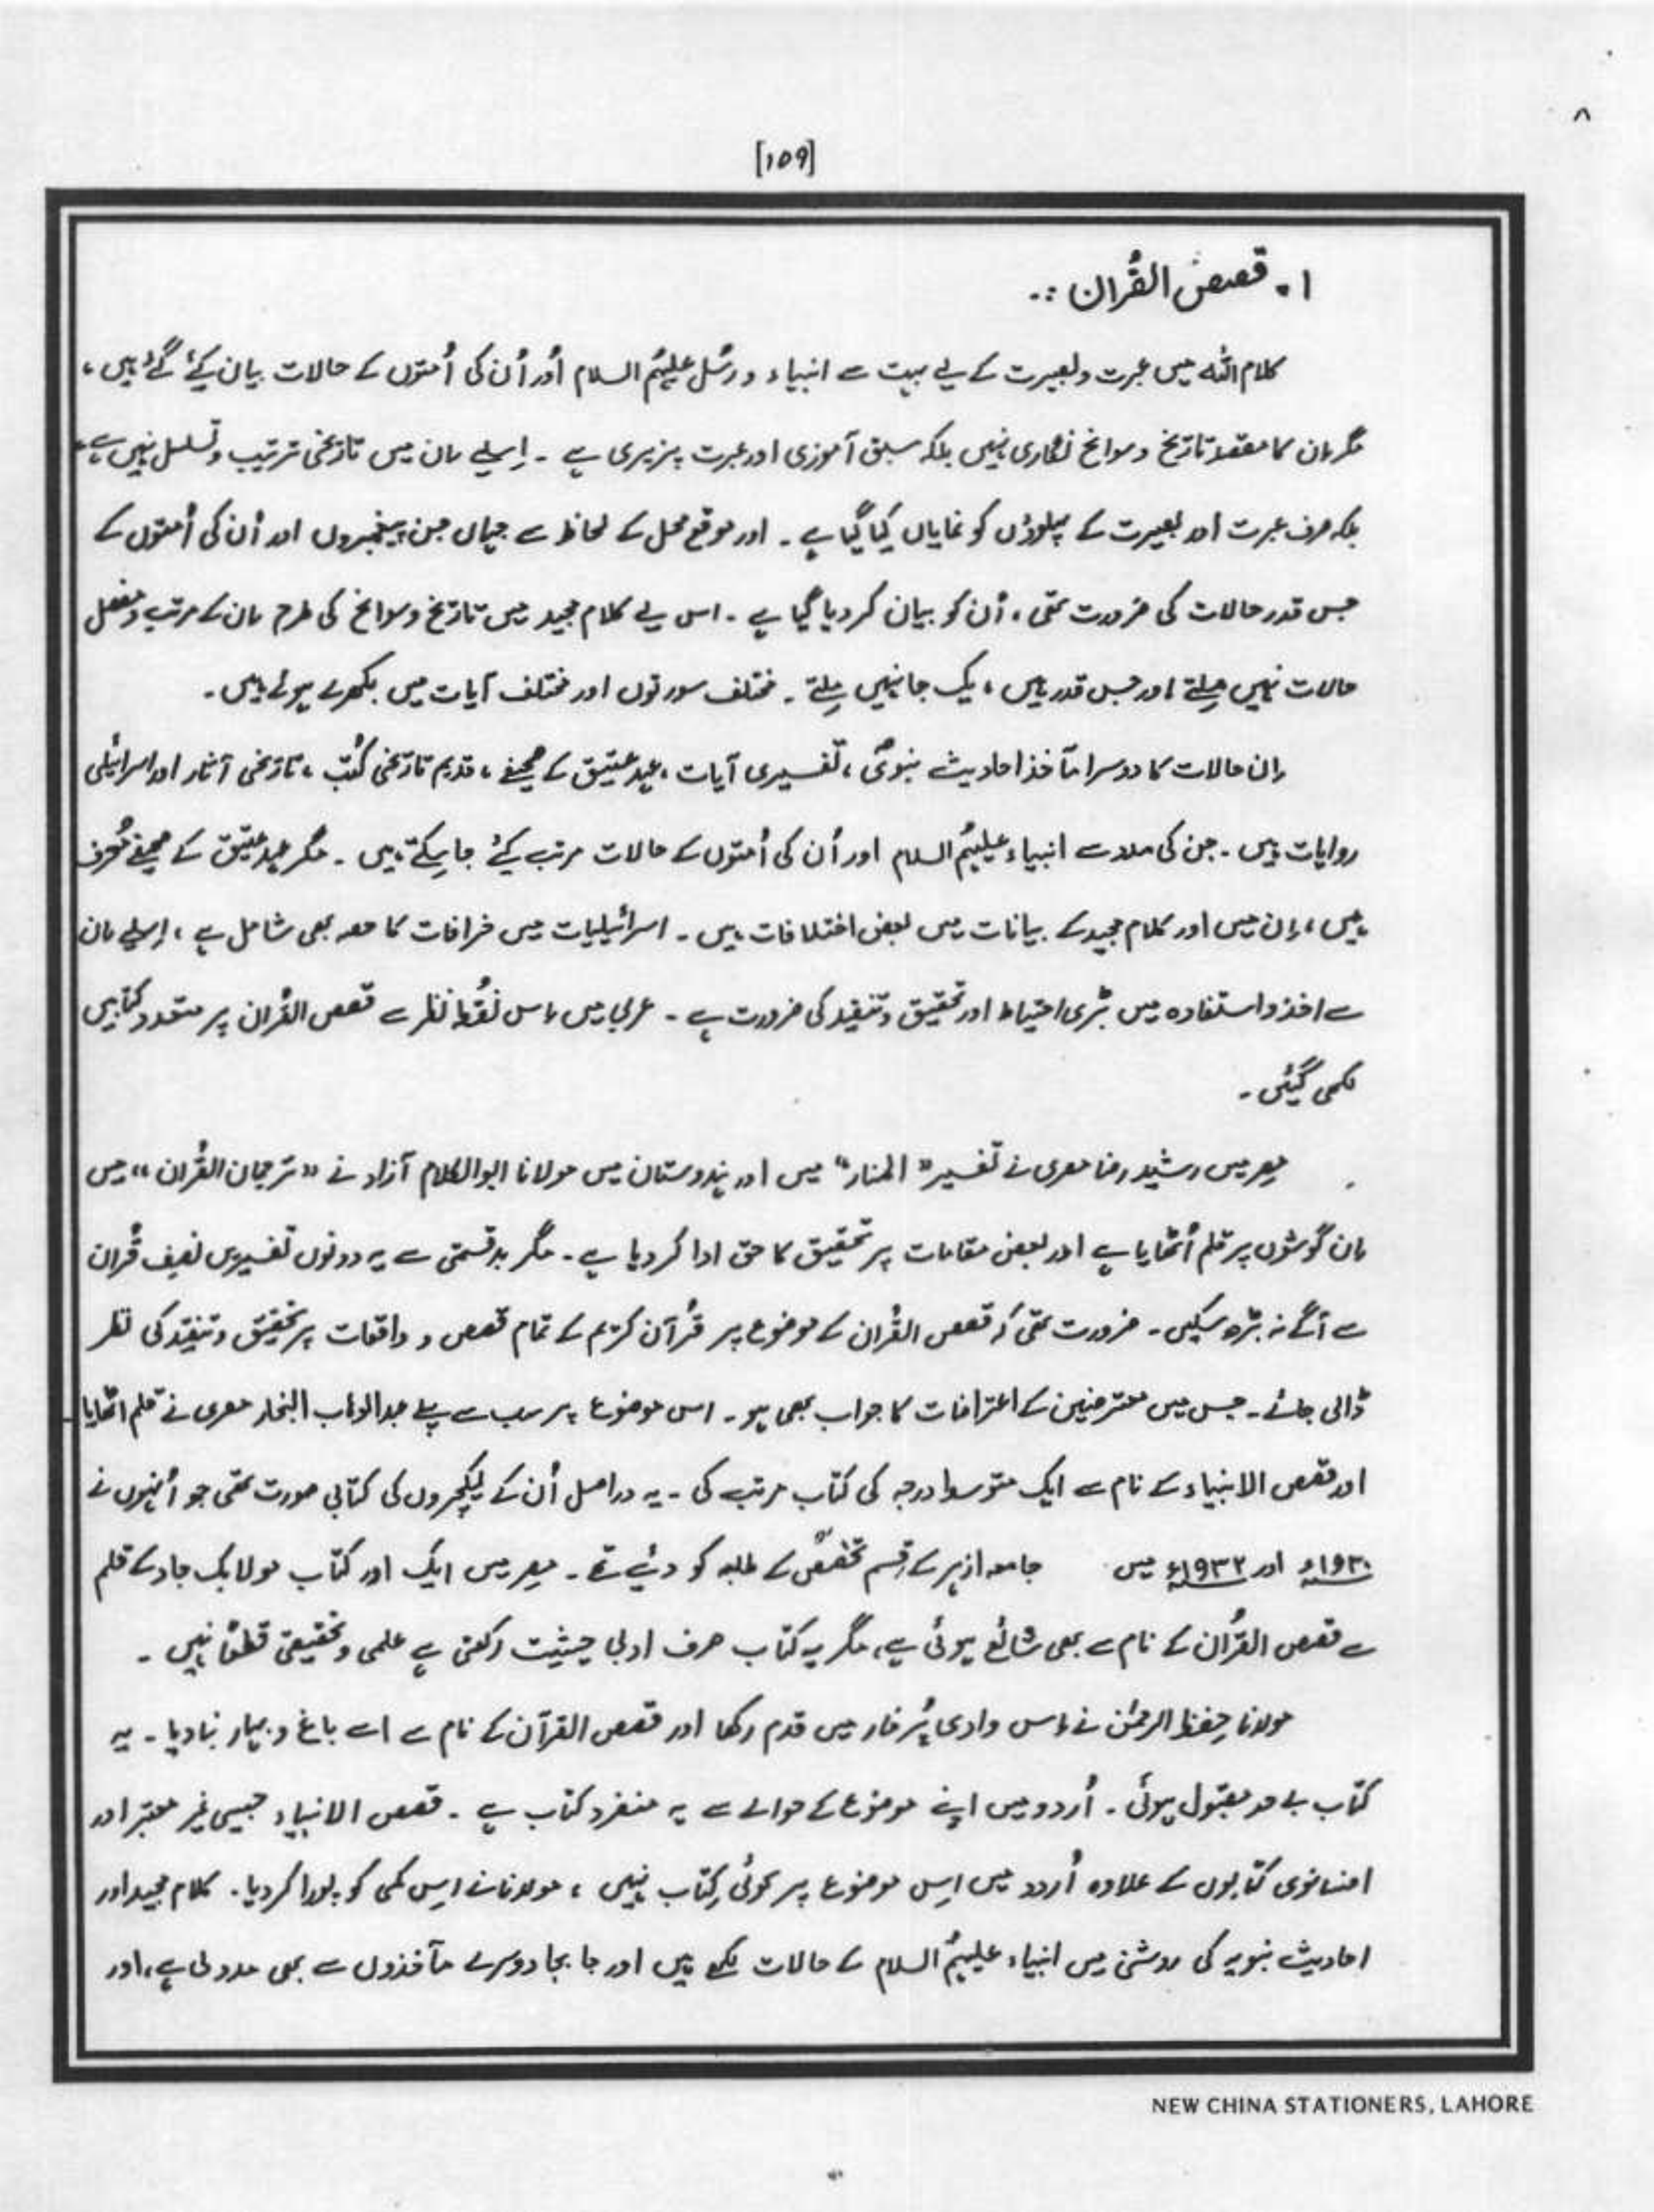 ۸
[۱۵۹]
۱۔ قصص القُرآن :۔
کلام اللہ میں عبرت و بصیرت کے لیے بہت سے انبیاء و رسُل علیہُم السلام اَور اُن کی اُمتوں کے حالات بیان کیٔے گٔے ہیں،
مگر اِن کا مقصد تاریخ و سوانح نگاری نہیں بلکہ سبق آموزی اور عبرت پزیری ہے ۔ اِسلیے اِن میں تاریخی ترتیب و تسلسل نہیں ہے،
بلکہ صرف عبرت اور بصیرت کے پہلوؤں کو نمایاں کیا گیا ہے ۔ اور موقع محل کے لحاظ سے جہاں جن پیغمبروں اور اُن کی اُمتوں کے
جس قدر حالات کی ضرورت تھی، اُن کو بیان کر دیا گیا ہے ۔ اس لیے کلام مجید میں تاریخ و سوانح کی طرح اِن کے مرتب و مفصل
حالات نہیں مِلتے اور جس قدر ہیں، یک جا نہیں مِلتے ۔ مختلف سورتوں اور مختلف آیات میں بکھرے ہوئے ہیں ۔
اِن حالات کا دوسرا مآخذ احادیث نبویؐ، تفسیری آیات، عہد عتیق کے صحیفے، قدیم تاریخی کُتب، تاریخی آثار اور اسرائیلی
روایات ہیں ۔ جن کی مدد سے انبیاء علیہُم السلام اور اُن کی اُمتوں کے حالات مرتب کیٔے جا سکتے ہیں ۔ مگر عہد عتیق کے صحیفے مُحرف
ہیں، اِن میں اور کلام مجید کے بیانات میں بعض اختلافات ہیں ۔ اسرائیلیات میں خرافات کا حصہ بھی شامل ہے، اِسلیے اِن
سے اخذ و استفادہ میں بڑی احتیاط اور تحقیق و تنقید کی ضرورت ہے ۔ عربی میں اِس نُقطہ نظر سے قصص القُرآن پر متعدد کتابیں
لکھی گئیں ۔
مصر میں رشید رضا مصری نے تفسیر "المنار" میں اور ہندوستان میں مولانا ابوالکلام آزاد نے "ترجمان القُرآن" میں
اِن گوشوں پر قلم اُٹھایا ہے اور بعض مقامات پر تحقیق کا حق ادا کر دیا ہے ۔ مگر بدقسمتی سے یہ دونوں تفسیریں نصف قُرآن
سے آگے نہ بڑھ سکیں ۔ ضرورت تھی کہ قصص القُرآن کے موضوع پر قُرآن کریم کے تمام قصص و واقعات پر تحقیق و تنقید کی نظر
ڈالی جائے ۔ جس میں معترضین کے اعتراضات کا جواب بھی ہو ۔ اس موضوع پر سب سے پہلے عبدالوہاب النجار مصری نے قلم اٹھایا
اور قصص الانبیاء کے نام سے ایک متوسط درجہ کی کتاب مرتب کی ۔ یہ دراصل اُن کے لیکچروں کی کتابی صورت تھی جو اُنہوں نے
۱۹۳۰ء اور ۱۹۳۲ء میں جامعہ ازہر کے قِسم تخصّص کے طلبہ کو دئیے تھے ۔ مِصر میں ایک اور کتاب مولا بک جاد کے قلم
سے قصص القُرآن کے نام سے بھی شائع ہوئی ہے، مگر یہ کتاب صرف ادبی حیثیت رکھتی ہے علمی و تحقیقی قطعًا نہیں ۔
مولانا حِفظ الرحمٰن نے اِس وادی پُرخار میں قدم رکھا اور قصص القرآن کے نام سے اسے باغ و بہار بنا دیا ۔ یہ
کتاب بے حد مقبول ہوئی ۔ اُردو میں اپنے موضوع کے حوالے سے یہ منفرد کتاب ہے ۔ قصص الانبیاء جیسی غیر معتبر اور
افسانوی کتابوں کے علاوہ اُردو میں اِس موضوع پر کوئی کِتاب نہیں، مولانا نے اِس کمی کو پورا کر دیا ۔ کلام مجید اور
احادیث نبویہ کی روشنی میں انبیاء علیہُم السلام کے حالات لکھے ہیں اور جا بجا دوسرے مآخذوں سے بھی مدد لی ہے، اور
NEW CHINA STATIONERS, LAHORE